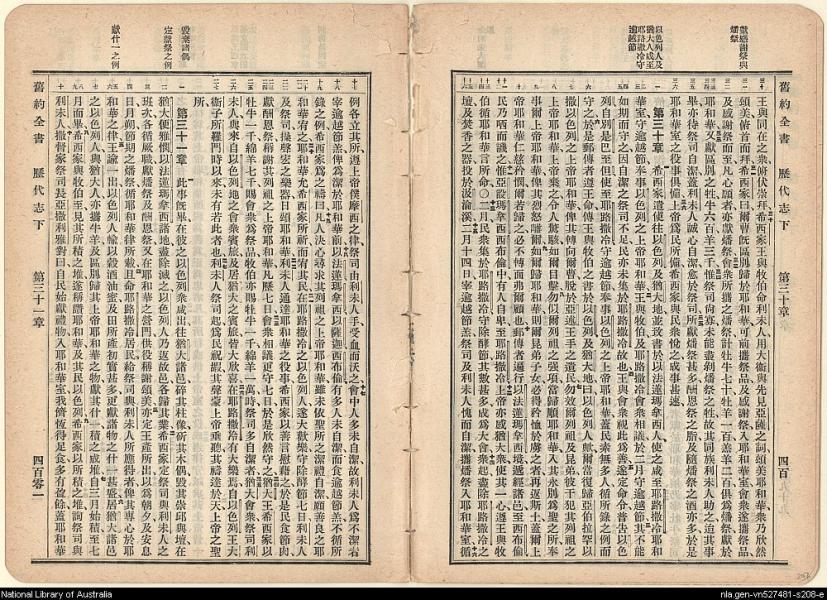 獻感謝祭與
燔祭
以色列人及
猶大人咸至
耶路撒冷守
逾越節
舊約全書 歷代志下 第三十章 四百
王與同在之衆俯伏崇拜希西家王與牧伯命利未人用大衛與先見亞薩之詞頌美耶和華衆乃欣然
頌美俯首而拜希西家曰爾曹旣區別歸於耶和華可前攜祭品及感謝祭入耶和華室會衆遂攜祭品
及感謝祭而至凡心願者亦獻燔祭會衆所攜之燔祭計牡牛七十牡羊一百羔羊二百俱爲燔祭獻於
耶和華又獻區別之牲牛六百羊三千惟祭司尙寡未能盡剝燔祭之牲故其同族利未人助之迨其事
畢亦待祭司自潔蓋利未人誠心自潔愈於祭司所獻燔祭甚多酬恩祭之脂及隨燔祭之酒亦多於是
耶和華室之役事俱備上帝爲民所備希西家與民悅之成事甚速
第三十章 希西家遣使往以色列及猶大地並致書於以法蓮瑪拿西人使之咸至耶路撒冷耶和
華室守逾越節奉事以色列之上帝耶和華王與牧伯及耶路撒冷會衆相議於二月守逾越節其不能
如期而守之因自潔之祭司不足民亦未集於耶路撒冷故也王與會衆視此爲善遂定命令普告以色
列自別是巴至但使至耶路撒冷守逾越節奉事以色列之上帝耶和華蓋民素無多人循所錄之例而
守之於是郵傳者遵王命傳王與牧伯之書於以色列及猶大地曰以色列人歟爾當復歸亞伯拉罕以
撒以色列之上帝耶和華俾其轉向爾曹脫於亞述王手之遺民勿效爾列祖及昆弟彼干犯其列祖之
上帝耶和華上帝棄之令人驚駭如爾目擊勿似爾列祖之强項當歸順耶和華入其永別爲聖之所奉
事爾上帝耶和華俾其烈怒離爾如爾歸耶和華則爾昆弟子女必得矜恤於虜之者再返斯土蓋爾上
帝耶和華仁慈矜憫爾若歸之必不轉面弗爾顧也郵傳者遍行以法蓮瑪拿西境邇經諸邑至西布倫
民乃哂而譏之惟亞設瑪拿西西布倫中有人自卑至耶路撒冷上帝亦感猶大衆使其一心遵王與牧
伯循耶和華言所命二月民衆集於耶路撒冷守除酵節其數甚多成爲大會衆起盡除耶路撒冷之祭
壇及焚香之器投於汲淪溪二月十四日宰逾越節羔祭司及利未人愧而自潔攜燔祭入耶和華室循
毀棄諸偶
定獻祭之例
獻什一之例
例各立其所遵上帝僕摩西之律祭司由利未人手受血而沃之會中人多未自潔故利未人爲不潔者
宰逾越節羔俾爲潔於耶和華前以法蓮瑪拿西以薩迦西布倫有多人未自潔而食逾越節羔不循所
錄之例希西家爲之禱曰凡人決心尋求其列祖之上帝耶和華雖未依聖所之潔禮自潔願善良之耶
和華宥之耶和華允希西家所祈而宥其民在耶路撒冷之以色列人遂大歡樂守除酵節七日利未人
及祭司操聲宏之樂器日頌耶和華利未人通達耶和華之役事希西家以善言慰藉之於是民食節肉
獻酬恩祭稱謝其列祖之上帝耶和華凡歷七日會衆相議更守七日於是欣然守之猶大王希西家以
牡牛一千綿羊七千賜會衆爲祭品牧伯亦賜牡牛一千綿羊一萬時祭司多自潔者猶大會衆祭司利
未人與來自以色列地之會衆賓旅及居猶大之賓旅皆大欣喜於耶路撒冷有大樂焉自以色列王大
衛子所羅門時以來未有若此者也利未人祭司起爲民祝嘏其聲蒙上帝垂聽其禱達於天上帝之聖
所
第三十一章 此事旣畢在彼之以色列衆咸出往猶大諸邑碎其柱像斫其木偶毀其崇邱與壇在
猶大便雅憫以法蓮瑪拿西諸地盡除滅之以色列人乃返故邑各歸其業希西家定祭司與利未人之
班次各循厥職獻燔祭及酬恩祭又在耶和華之營門供役稱謝頌美亦定王產所出以爲朝夕及安息
日月朔節期之燔祭循耶和華律所載且命耶路撒冷居民給祭司與利未人所應得者俾其專心於耶
和華之律王諭一出以色列人輸以穀酒油蜜及田所產初實甚多更獻諸物之什一甚盛居猶大諸邑
之以色列人與猶大人亦攜牛羊及區別歸其上帝耶和華之物獻其什一積之盈堆自三月始積至七
月而畢希西家與牧伯至見其所積之堆遂稱讚耶和華及其民以色列希西家以所積之堆詢祭司與
利未人撒督家祭司長亞撒利雅對曰自民始獻禮物入耶和華室我儕恆得足食多有盈餘蓋耶和華
舊約全書 歷代志下 第三十一章 四百零一
National Library of Australia
nla.gen-vn527481-s208-e